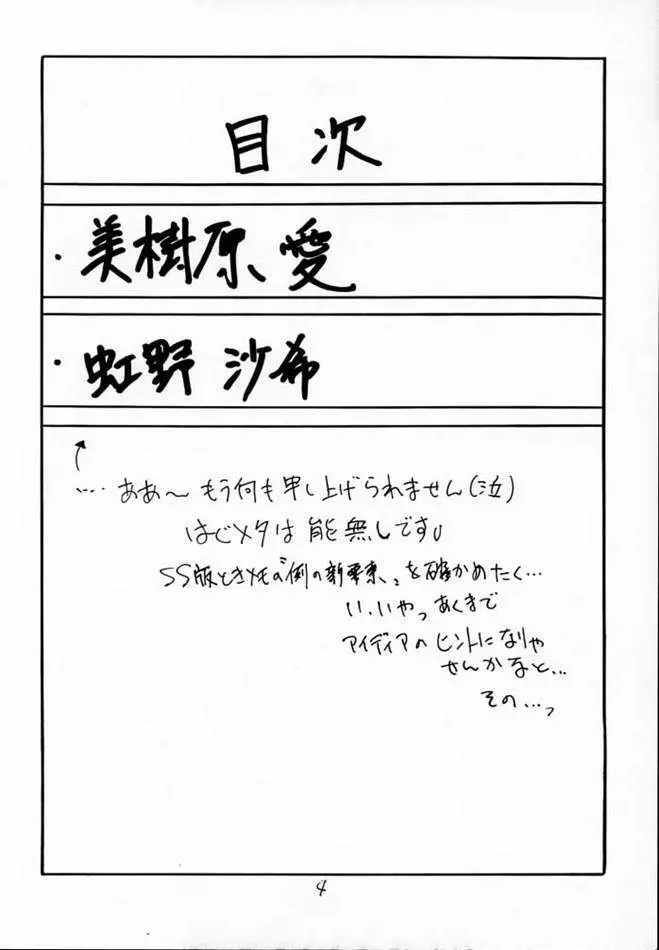 目次
・美樹原 愛
・虹野 沙希
…。ああ〜もう何も申し上げられません(泣)
はじメタは能無しです。
SS版ときメモの"例の新要素"を確かめたく…
い、いやっ あくまで
アイディアのヒントになりゃ
せんかなと…
その…っ
4